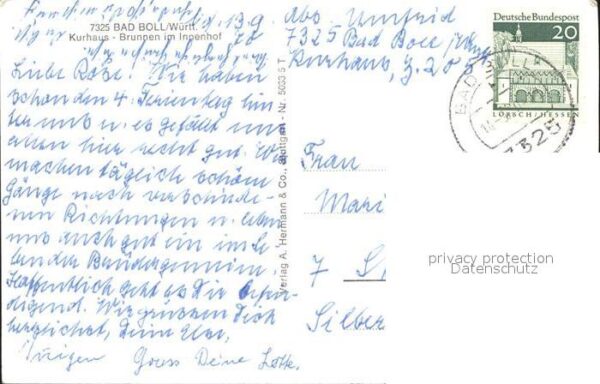 7325 BAD BOLL/Württ.
Kurhaus - Brunnen im Innenhof
d. 13.9.
70
Liebe Rose! Wir haben
schon den 4. Ferientag hin-
ter uns u. es gefällt uns
allen hier recht gut. Wir
machen täglich schöne
Gänge nach verschiede-
nen Richtungen u. leben
uns auch gut ein im Le-
ben der Brüdergemeine.
Hoffentlich geht es Dir befrie-
digend. Wir grüssen Dich
herzlichst, Deine Else,
Jürgen Gruss Deine Lotte.
Verlag A. Hermann & Co., Stuttgart - Nr. 5033 ST
Abs. Umfrid
7325 Bad Boll / Württ.
Kurhaus, Z. 205
Deutsche Bundespost
20
LORSCH/HESSEN
BAD BOLL
7325
Frau
Mari
7 S
Silber
privacy protection
Datenschutz